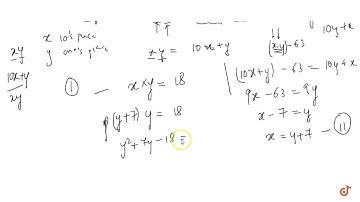 x 10's place
xy y one's place
10x+y
xy
xy = 10x+y
① — x × y = 18
(y+7) y = 18
y² + 7y - 18 =
10y+x
(xy) - 63
(10x+y) - 63 = 10y+x
9x - 63 = 9y
x - 7 = y
x = y+7 — ⑪